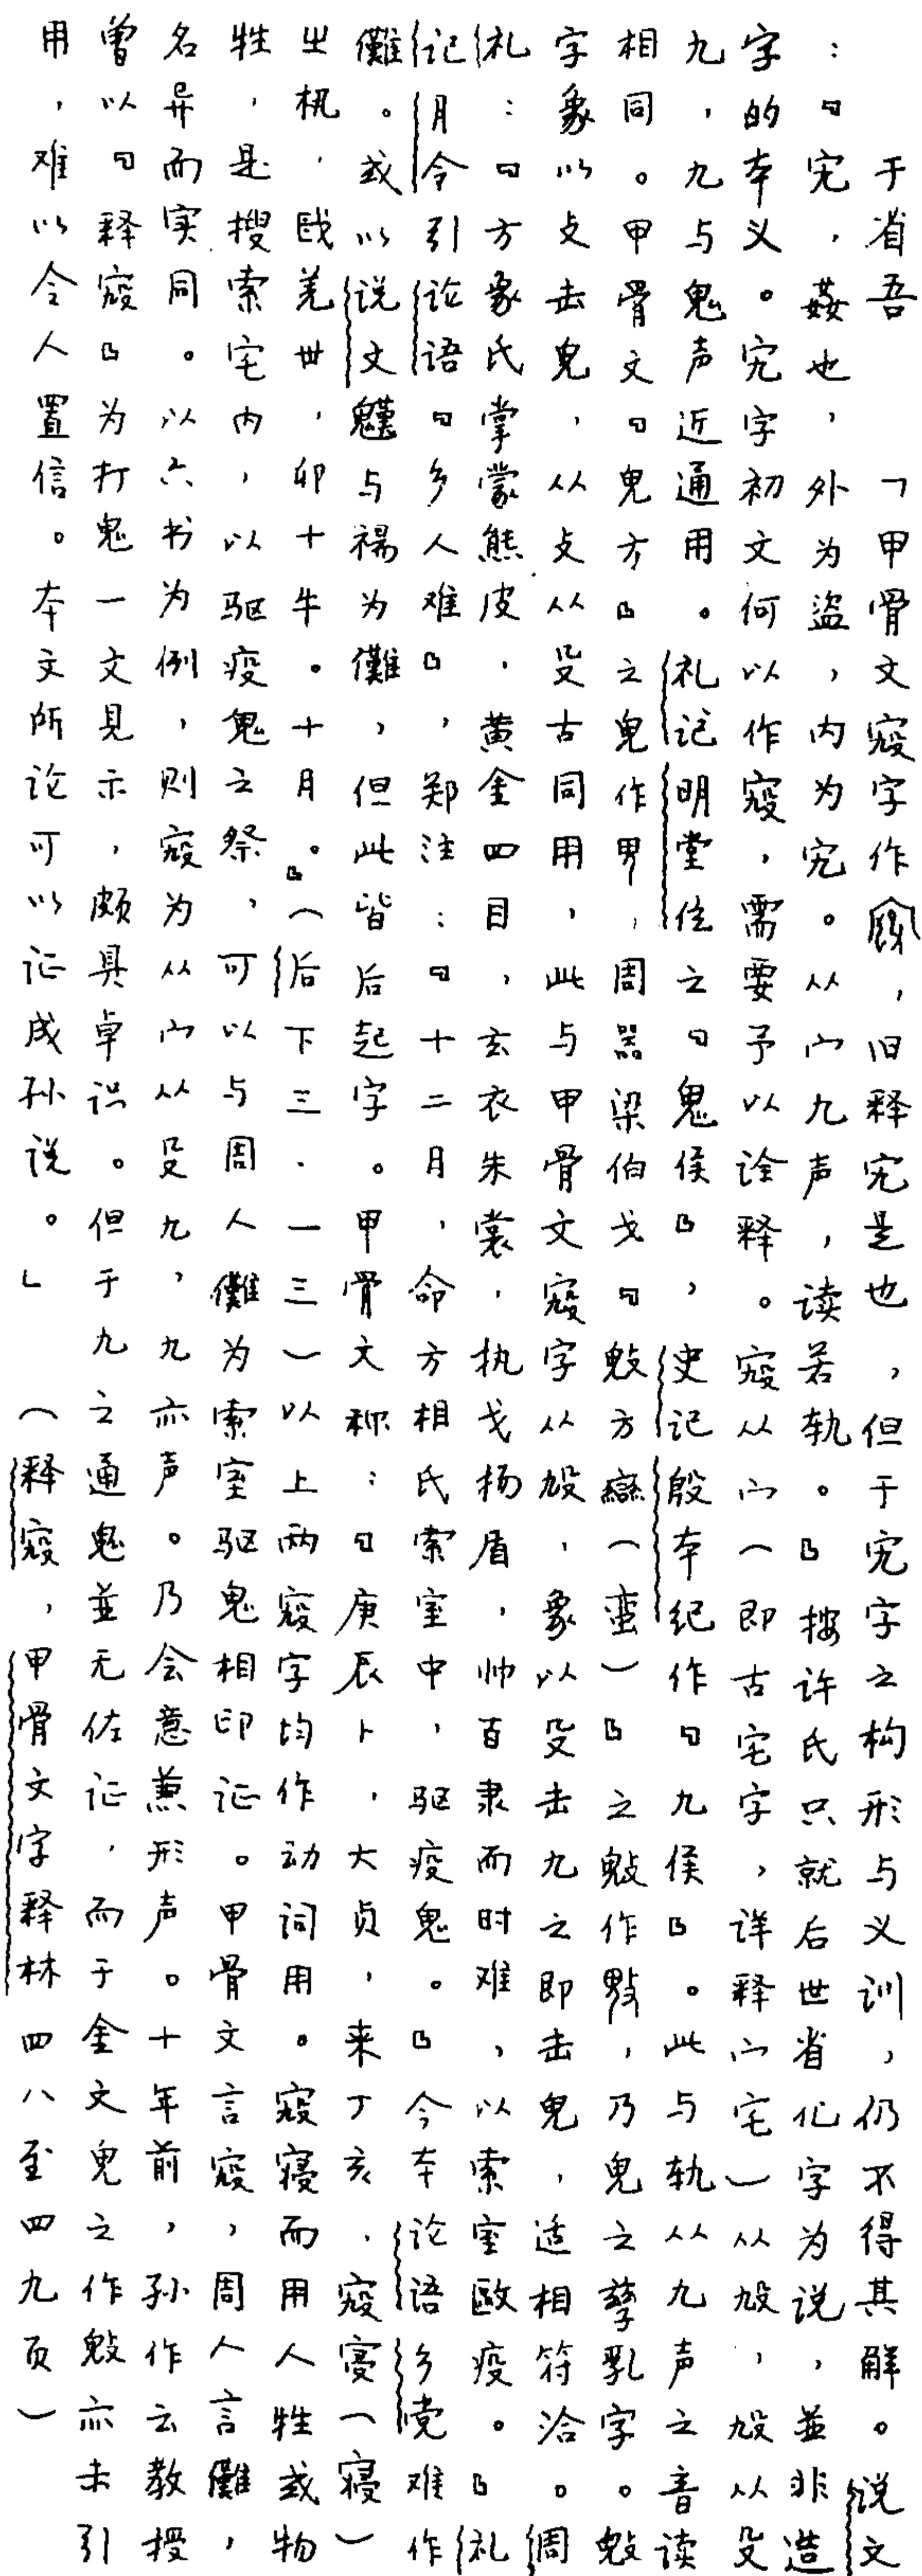 于省吾　「甲骨文𡧱字作，旧释宄是也，但于宄字之构形与义训，仍不得其解。说文
：『宄，姦也，外为盗，内为宄。从宀九声，读若轨。』按许氏只就后世省化字为说，並非造
字的本义。宄字初文何以作𡧱，需要予以诠释。𡧱从宀（即古宅字，详释宀宅）从㲃，㲃从殳
九，九与鬼声近通用。礼记明堂位之『鬼侯』，史记殷本纪作『九侯』。此与轨从九声之音读
相同。甲骨文『鬼方』之鬼作，周器梁伯戈『鬽方䜌（蛮）』之作，乃鬼之孳乳字。
字象以攴击鬼，从攴从殳古同用，此与甲骨文𡧱字从㲃，象以殳击九之即击鬼，适相符洽。周
礼：『方象氏掌蒙熊皮，黄金四目，玄衣朱裳，执戈扬盾，帅百隶而时难，以索室毆疫。』礼
记月令引论语『乡人难』，郑注：『十二月，命方相氏索室中，驱疫鬼。』今本论语乡党难作
傩。或以说文与禓为儺，但此皆后起字。甲骨文称：『庚辰卜，大贞，来丁亥，𡧱𡨦（寝）
㞢，羌卅，卯十牛。十月。』（后下三·一三）以上两𡧱字均作动词用。𡧱寝而用人牲或物
牲，是搜索宅内，以驱疫鬼之祭，可以与周人儺为索室驱鬼相印证。甲骨文言𡧱，周人言儺，
名异而实同。以六书为例，则𡧱为从宀从殳九，九亦声。乃会意兼形声。十年前，孙作云教授
曾以『释𡧱』为打鬼一文见示，颇具卓识。但于九之通鬼並无佐证，而于金文鬼之作亦未引
用，难以令人置信。本文所论可以证成孙说。」（释𡧱，甲骨文字释林四八至四九页）